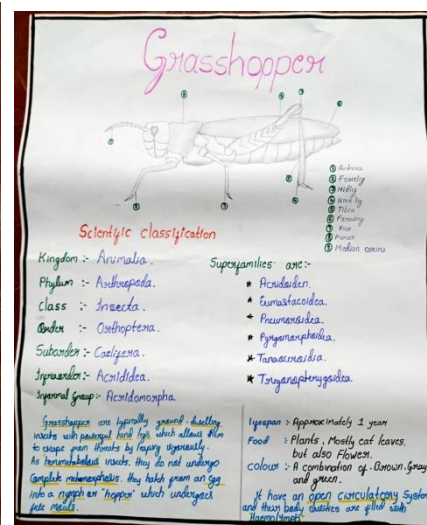 Grasshopper
① Antenna
② Foreleg
③ Midleg
④ Hind leg
⑤ Tibia
⑥ Forewing
⑨ Median ocellus
Scientific classification
Kingdom :- Animalia.
Phylum :- Arthropoda.
Class :- Insecta.
Order :- Orthoptera.
Suborder :- Caelifera.
Infraorder :- Acrididea.
Informal Group :- Acridomorpha.
Superfamilies are:-
* Acridoidea.
* Eumastacoidea.
* Pneumoroidea.
* Pyrgomorphoidea.
* Tanaoceroidea.
* Trigonopterygoidea.
Grasshopper are typically ground-dwelling
insects with powerful hind legs which allows them
to escape from threats by leaping vigorously.
As hemimetabolous insects, they do not undergo
Complete metamorphosis. They hatch from an Egg
into a nymph or "hopper" which undergoes
five moults.
Lifespan : Approximately 1 year
Food : Plants, Mostly eat leaves,
but also Flower.
colour : A combination of Brown, Gray
and green.
It have an open circulatory System
and their body cavities are filled with
Haemolymph